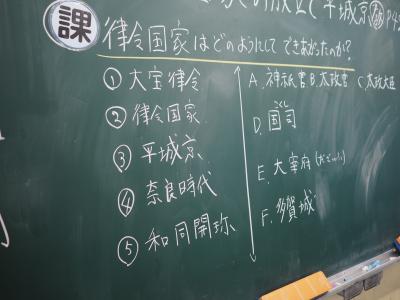 の成立と平城京 教 P4
課 律令国家はどのようにしてできあがったのか?
① 大宝律令
② 律令国家
③ 平城京
④ 奈良時代
⑤ 和同開珎
A. 神祇官 B. 太政官 C. 太政大臣
D. 国司
こくし
E. 大宰府 (だざいふ)
F. 多賀城